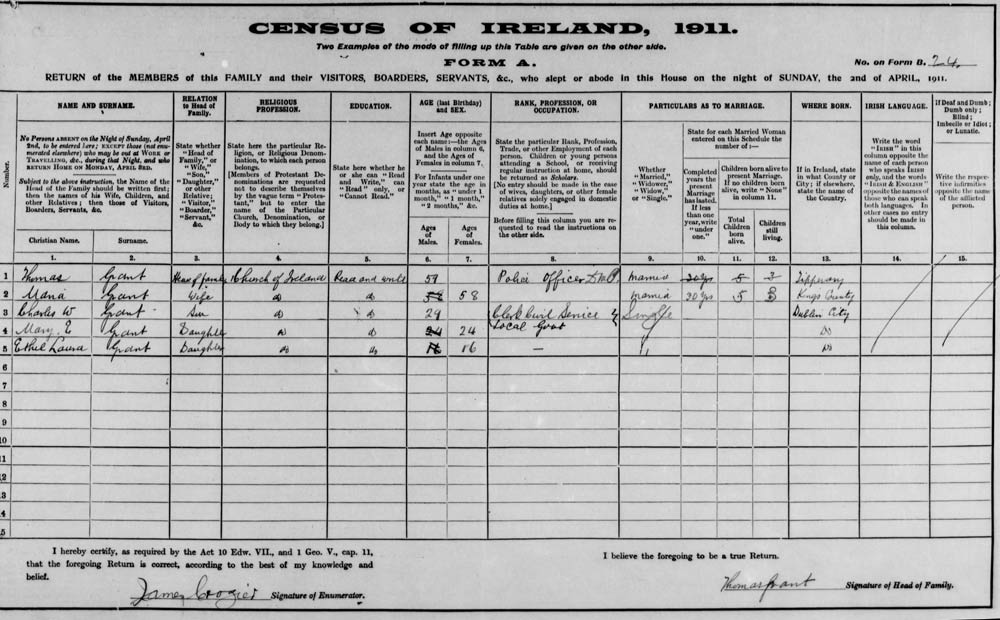 CENSUS OF IRELAND, 1911.
Two Examples of the mode of filling up this Table are given on the other side.
FORM A.
No. on Form B. 24.
RETURN of the MEMBERS of this FAMILY and their VISITORS, BOARDERS, SERVANTS, &c., who slept or abode in this House on the night of SUNDAY, the 2nd of APRIL, 1911.
Number.
NAME AND SURNAME.
No Persons ABSENT on the Night of Sunday, April
2nd, to be entered here; EXCEPT those (not enu-
merated elsewhere) who may be out at WORK or
TRAVELLING, &c., during that Night, and who
RETURN HOME ON MONDAY, APRIL 3RD.
Subject to the above instruction, the Name of the
Head of the Family should be written first;
then the names of his Wife, Children, and
other Relatives; then those of Visitors,
Boarders, Servants, &c.
Christian Name.
Surname.
RELATION
to Head of
Family.
State whether
"Head of
Family," or
"Wife,"
"Son,"
"Daughter,"
or other
Relative;
"Visitor,"
"Boarder,"
"Servant,"
&c.
RELIGIOUS
PROFESSION.
State here the particular Re-
ligion, or Religious Denom-
ination, to which each person
belongs.
[Members of Protestant De-
nominations are requested
not to describe themselves
by the vague term "Protes-
tant," but to enter the
name of the Particular
Church, Denomination, or
Body to which they belong.]
EDUCATION.
State here whether he
or she can "Read
and Write," can
"Read" only, or
"Cannot Read."
AGE (last Birthday)
and SEX.
Insert Age opposite
each name:—the Ages
of Males in column 6,
and the Ages of
Females in column 7.
For Infants under one
year state the age in
months, as "under 1
month," "1 month,"
"2 months," &c.
Ages
of
Males.
Ages
of
Females.
RANK, PROFESSION, OR
OCCUPATION.
State the particular Rank, Profession,
Trade, or other Employment of each
person. Children or young persons
attending a School, or receiving
regular instruction at home, should
be returned as Scholars.
[No entry should be made in the case
of wives, daughters, or other female
relatives solely engaged in domestic
duties at home.]
Before filling this column you are re-
quested to read the instructions on
the other side.
PARTICULARS AS TO MARRIAGE.
Whether
"Married,"
"Widower,"
"Widow,"
or "Single."
State for each Married Woman
entered on this Schedule the
number of:—
Completed
years the
present
Marriage
has lasted.
If less
than one
year, write
"under
one."
Children born alive to
present Marriage.
If no children born
alive, write "None"
in column 11.
Total
Children
born
alive.
Children
still
living.
WHERE BORN.
If in Ireland, state
in what County or
City; if elsewhere,
state the name of
the Country.
IRISH LANGUAGE.
Write the word
"IRISH" in this
column opposite the
name of each person
who speaks IRISH
only, and the words
"IRISH & ENGLISH"
opposite the names of
those who can speak
both languages. In
other cases no entry
should be made in
this column.
If Deaf and Dumb;
Dumb only;
Blind;
Imbecile or Idiot;
or Lunatic.
Write the respec-
tive infirmities
opposite the name
of the afflicted
person.
1. 2. 3. 4. 5. 6. 7. 8. 9. 10. 11. 12. 13. 14. 15.
1 Thomas Grant Head of family Church of Ireland Read and write 59 Police Officer D.M.P. Married 30 yrs 5 3 Tipperary
2 Maria Grant Wife do do 58 58 Married 30 yrs 5 3 Kings County
3 Charles W Grant Son do do 29 Clerk Civil Service Single Dublin City
4 Mary E Grant Daughter do do 24 24 Local Govt do
5 Ethel Laura Grant Daughter do do 16 16 — do
6
7
8
9
10
11
12
13
14
15
I hereby certify, as required by the Act 10 Edw. VII., and 1 Geo. V., cap. 11,
that the foregoing Return is correct, according to the best of my knowledge and
belief.
James Crozier Signature of Enumerator.
I believe the foregoing to be a true Return.
Thomas Grant Signature of Head of Family.